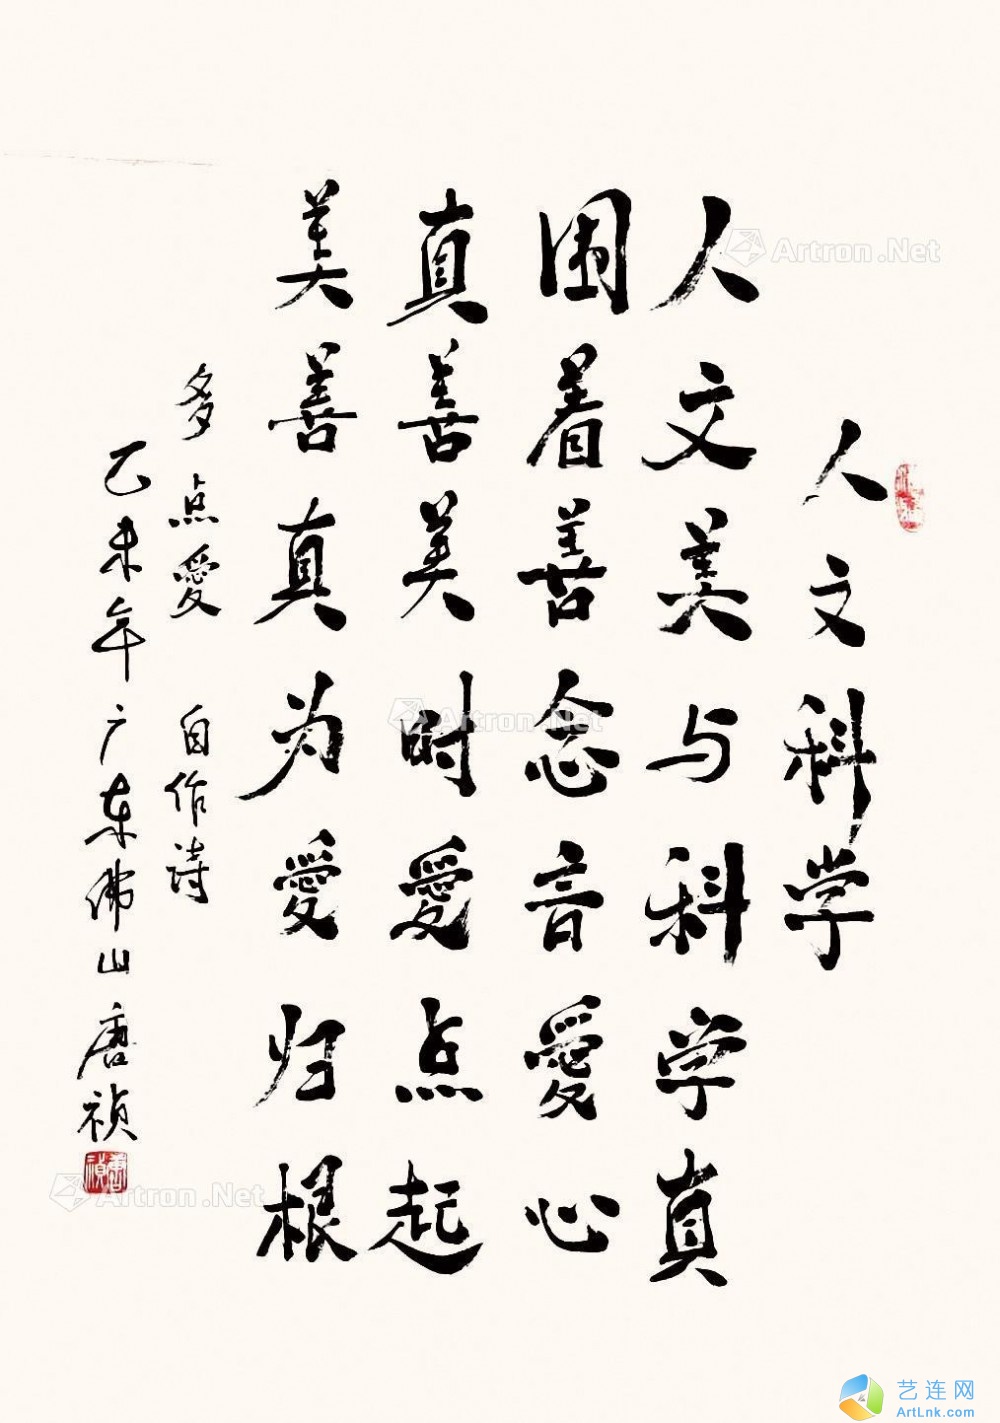 人文科学
人文美与科学真
围着善念音爱心
真善美时爱点起
美善真为爱归根
多点爱 自作诗
乙未年广东佛山唐祯
Artron.Net
Artron.Net
Artron.Net
艺连网
ArtLnk.com